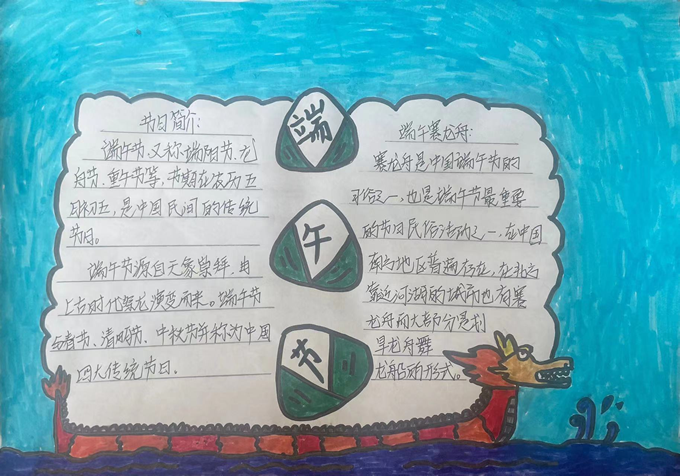 节日简介:
端午节,又称端阳节、龙
舟节、重午节等,节期在农历五
月初五,是中国民间的传统
节日。
端午节源自天象崇拜,由
上古时代祭龙演变而来。端午节
与春节、清明节、中秋节并称为中国
四大传统节日。
端
午
节
端午赛龙舟:
赛龙舟是中国端午节的
习俗之一,也是端午节最重要
的节日民俗活动之一,在中国
南方地区普遍存在,在北方
靠近河湖的城市也有赛
龙舟而大部分是划
旱龙舟舞
龙船的形式。